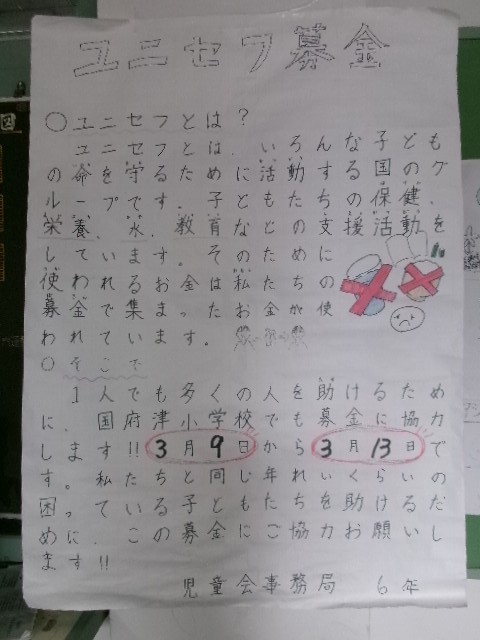 ユニセフ募金
○ユニセフとは？
ユニセフとは、いろんな子ども
の命を守るために活動する国のグ
ループです。子どもたちの保健、
栄養、水、教育などの支援活動を
しています。そのために
使われるお金は私たちの
募金で集まったお金が使
われています。
○そこで
1人でも多くの人を助けるため
に、国府津小学校でも募金に協力
します!!3月9日から3月13日で
す。私たちと同じ年れいくらいの
困っている子どもたちを助けるだ
めに、この募金にご協力お願いし
ます!!
児童会事務局 6年